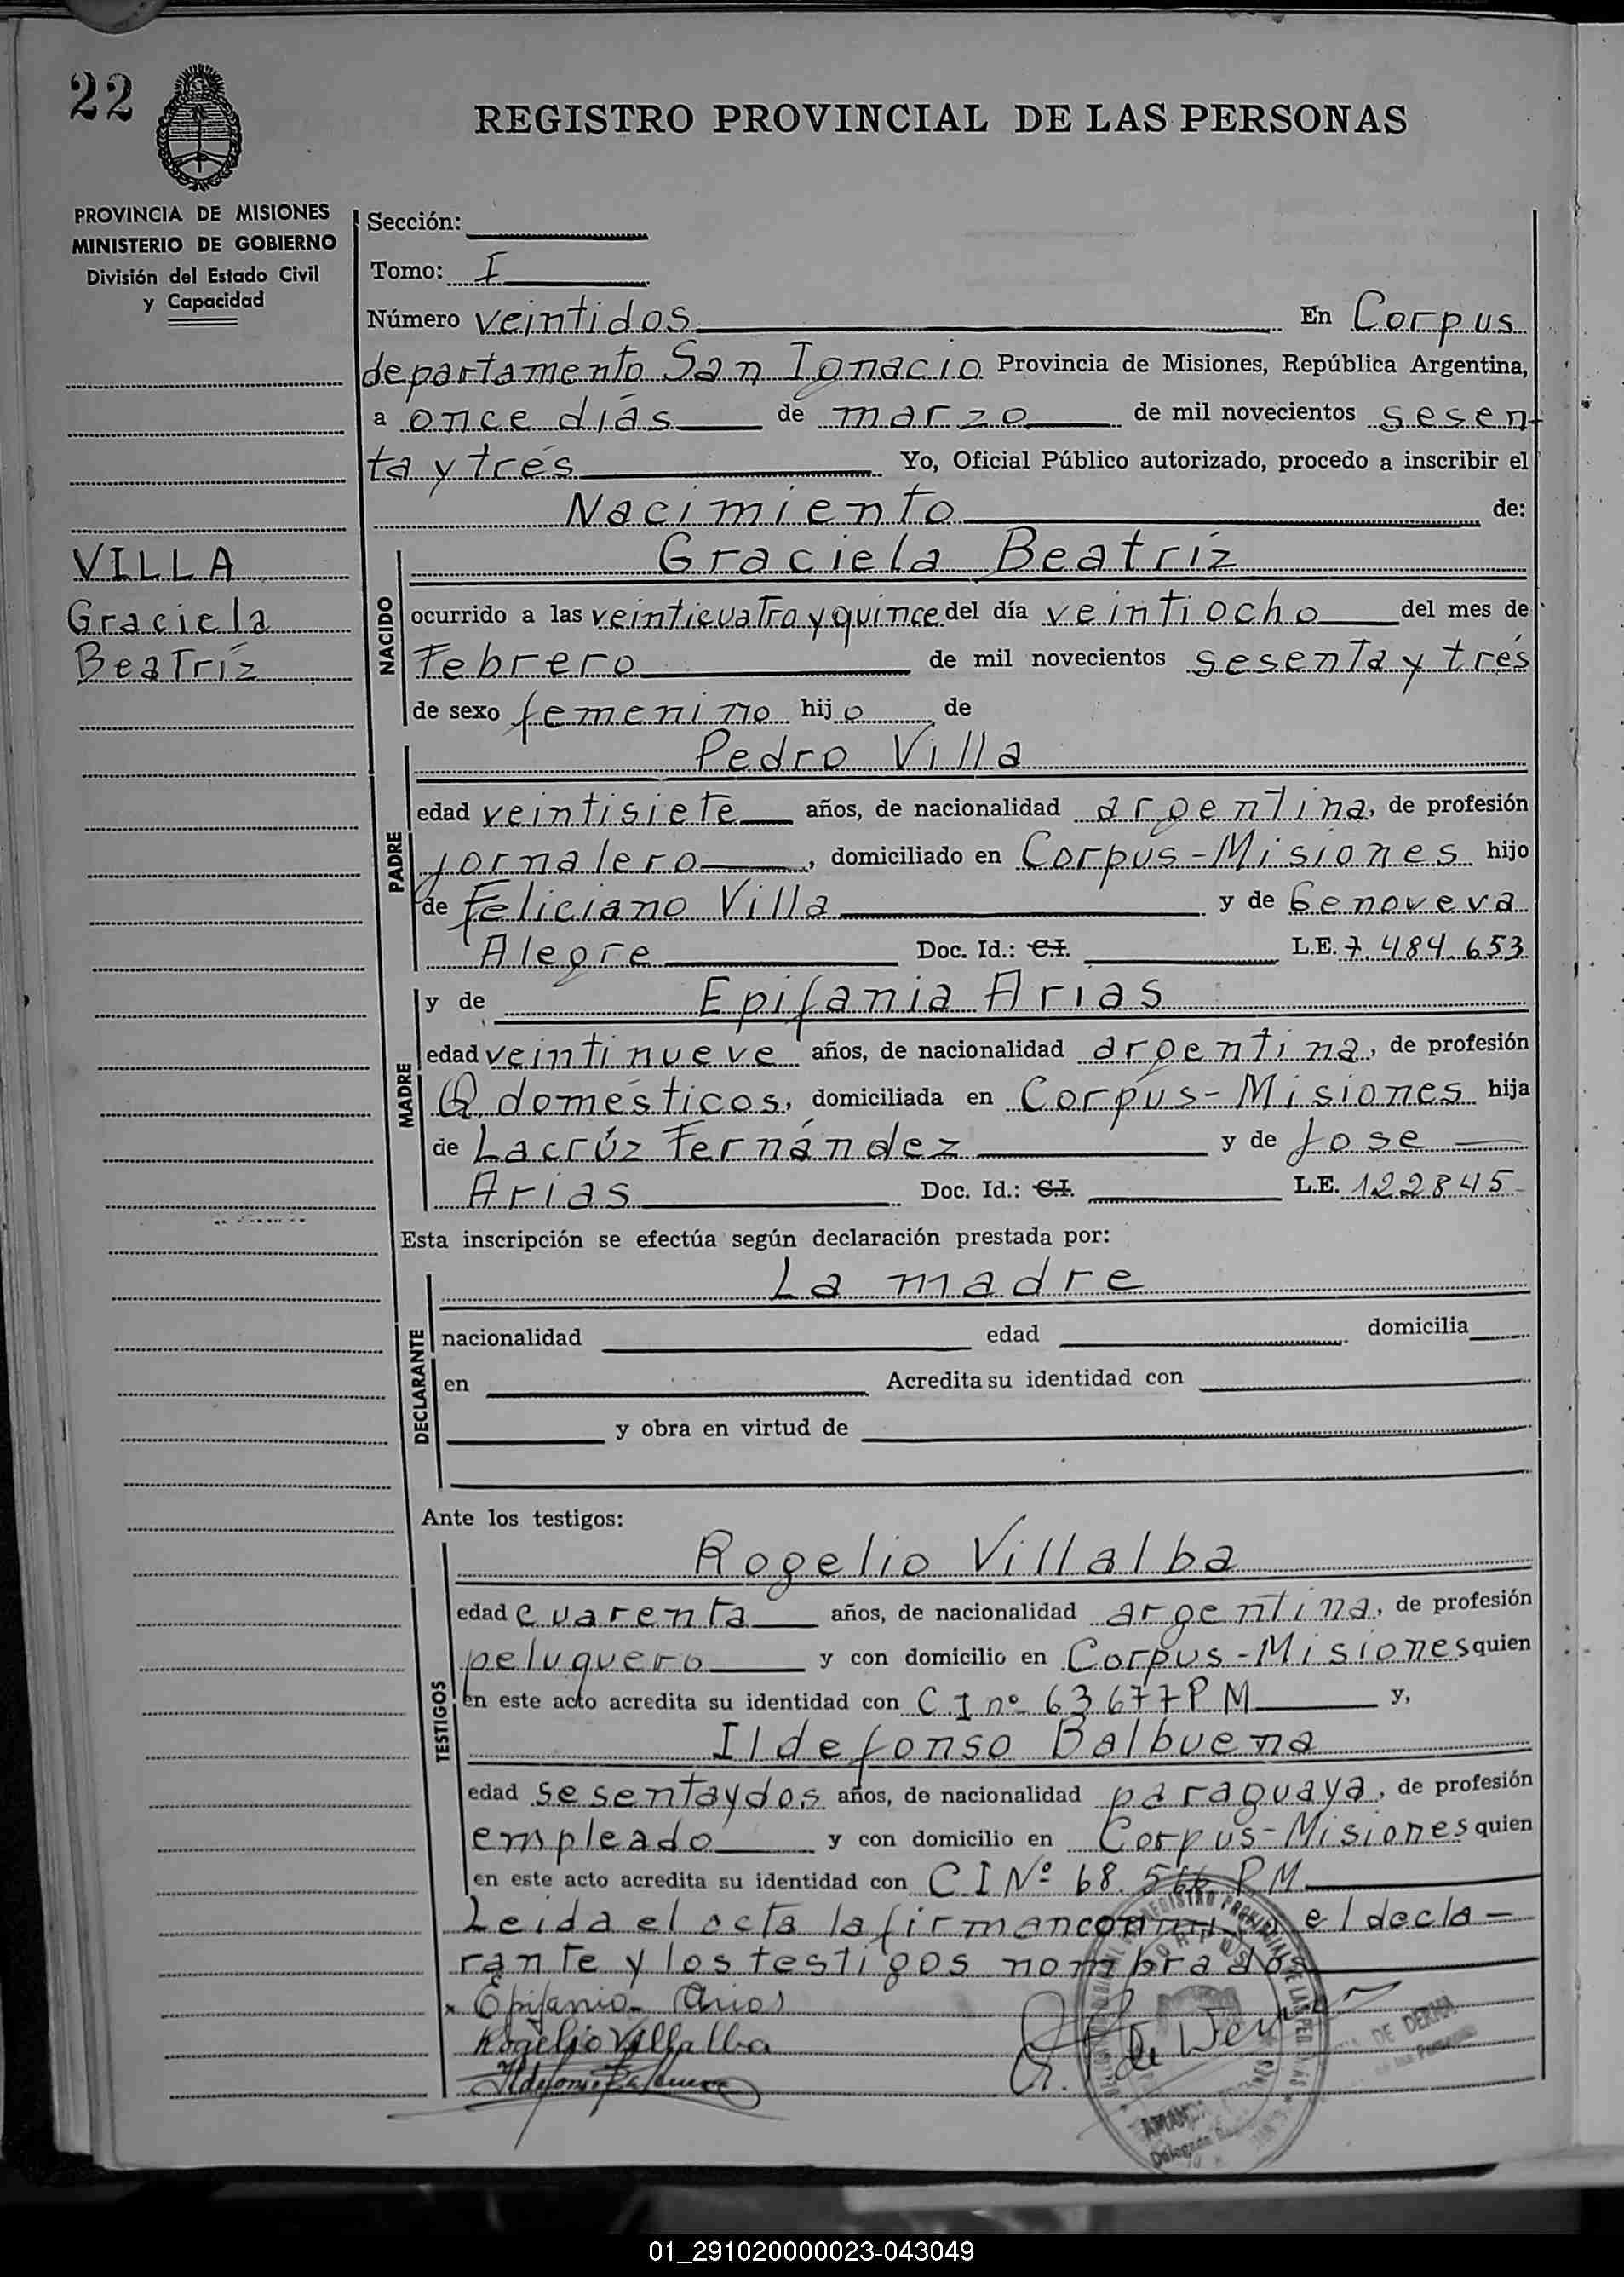 22
REGISTRO PROVINCIAL DE LAS PERSONAS
PROVINCIA DE MISIONES
MINISTERIO DE GOBIERNO
División del Estado Civil
y Capacidad
Sección:
Tomo: I
Número veintidos En Corpus
departamento San Ignacio Provincia de Misiones, República Argentina,
a once días de marzo de mil novecientos sesen
ta y trés Yo, Oficial Público autorizado, procedo a inscribir el
Nacimiento de:
VILLA
Graciela
Beatríz
NACIDO
Graciela Beatríz
ocurrido a las veinticuatro y quince del día veintiocho del mes de
Febrero de mil novecientos sesenta y trés
de sexo femenino hijo de
PADRE
Pedro Villa
edad veintisiete años, de nacionalidad argentina, de profesión
jornalero, domiciliado en Corpus-Misiones hijo
de Feliciano Villa y de Genoveva
Alegre Doc. Id.: C.I. L.E. 7.484.653
MADRE
y de Epifania Arias
edad veintinueve años, de nacionalidad argentina, de profesión
Q. domésticos, domiciliada en Corpus-Misiones hija
de Lacrúz Fernández y de Jose
Arias Doc. Id.: C.I. L.E. 122845
Esta inscripción se efectúa según declaración prestada por:
DECLARANTE
La madre
nacionalidad edad domicilia
en Acredita su identidad con
y obra en virtud de
Ante los testigos:
TESTIGOS
Rogelio Villalba
edad cuarenta años, de nacionalidad argentina, de profesión
peluquero y con domicilio en Corpus-Misiones quien
en este acto acredita su identidad con C.I nº 63677PM y,
Ildefonso Balbuena
edad sesentaydos años, de nacionalidad paraguaya, de profesión
empleado y con domicilio en Corpus-Misiones quien
en este acto acredita su identidad con CI Nº 68.566 PM
Leida el acta la firman el decla-
rante y los testigos nombrados
x Epifania Arias
Rogelio Villalba
Ildefonso Balbuena
CORPUS
DE DERNA
AMANDA
01_291020000023-043049